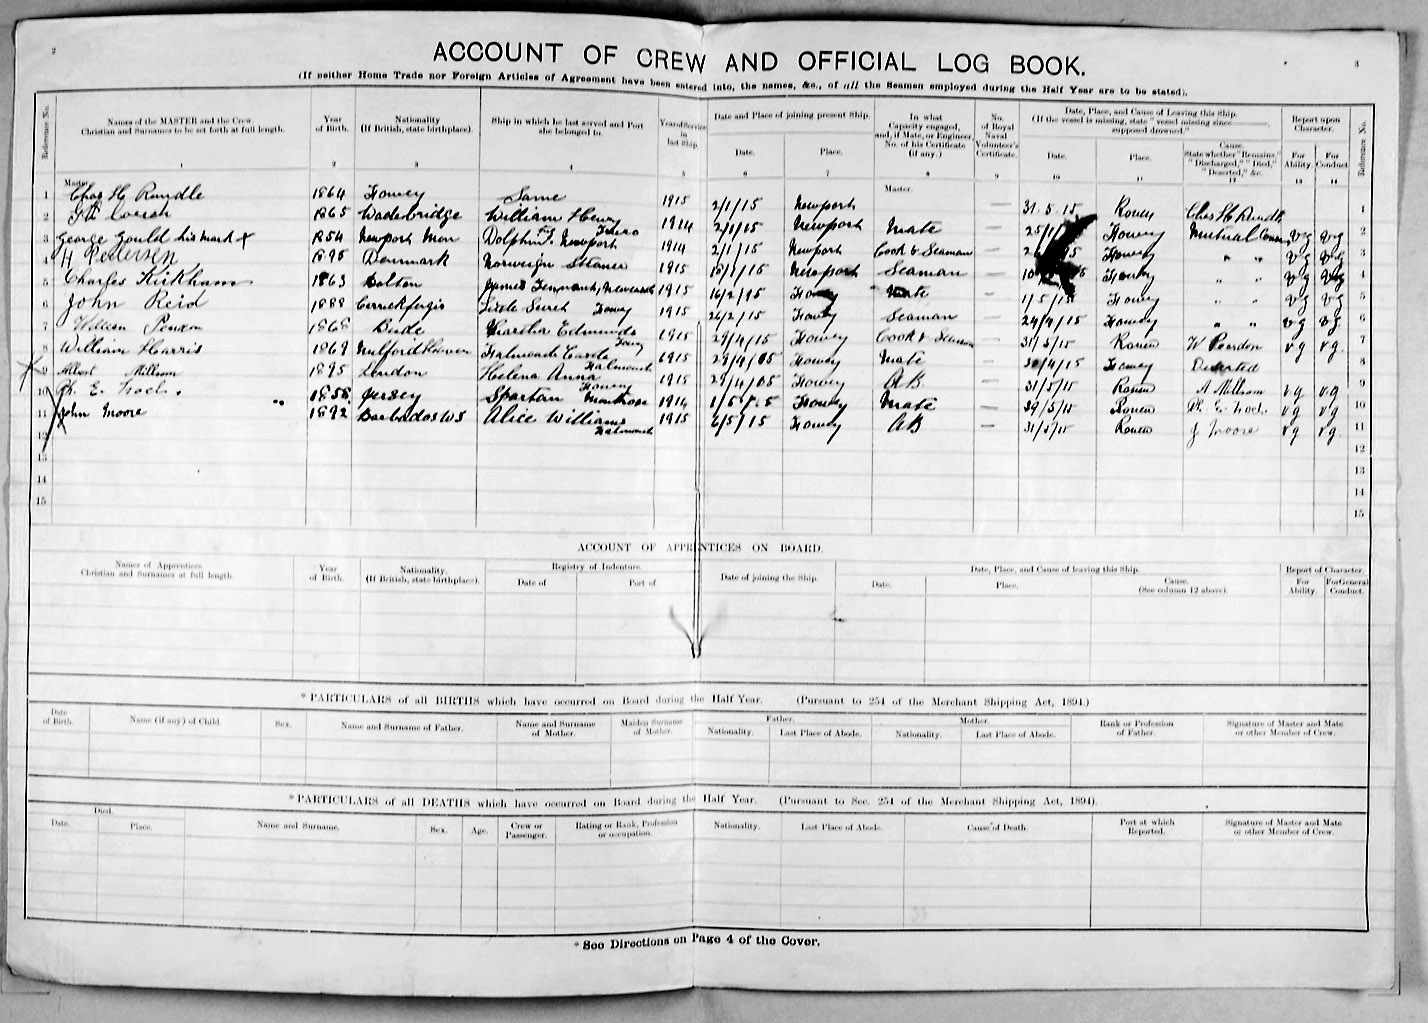 2
3
ACCOUNT OF CREW AND OFFICIAL LOG BOOK.
(If neither Home Trade nor Foreign Articles of Agreement have been entered into, the names, &c., of all the Seamen employed during the Half Year are to be stated).
Reference No. Names of the MASTER and the Crew. Christian and Surnames to be set forth at full length. Year of Birth. Nationality (If British, state birthplace). Ship in which he last served and Port she belonged to. Year of Service in last Ship. Date and Place of joining present Ship. Date. Place. In what Capacity engaged, and, if Mate, or Engineer, No. of his Certificate (if any.) No. of Royal Naval Volunteer's Certificate. Date, Place, and Cause of Leaving this Ship. (If the vessel is missing, state "vessel missing since supposed drowned." Date. Place. Cause. State whether "Remains" "Discharged," "Died," "Deserted," &c. Report upon Character. For Ability. For Conduct Reference No.
1 2 3 4 5 6 7 8 9 10 11 12 13 14
1 Master. Chas H Rundle 1864 Fowey Same 1915 2/1/15 Newport Master. — 31.5.15 Rouen Chas H Rundle 1
2 1865 Wadebridge William Henry Truro 1914 2/1/15 Newport Mate — Fowey Mutual vg vg 2
3 George Gould his mark x 1854 Newport Mon Dolphin Newport 1914 2/1/15 Newport Cook & Seaman — Fowey " " vg vg 3
4 H Pedersen 1895 Denmark Norweign Steamer 1915 15/1/15 Newport Seaman — Fowey " " vg vg 4
5 Charles Kirkham 1863 Bolton James Tennant, Newcastle 1915 16/2/15 Fowey Mate — 1/5/15 Fowey " " vg vg 5
6 John Reid 1888 Little Secret Fowey 1915 26/2/15 Fowey Seaman — 24/4/15 Fowey " " vg vg 6
7 William 1868 Bude Edmunds Fowey 1915 29/4/15 Fowey Cook & Seaman — 31/5/15 Rouen vg vg 7
8 William Harris 1869 Milford Haven Falmouth Castle Falmouth 1915 29/4/15 Fowey Mate — 30/4/15 Fowey Deserted 8
9 Albert Millsom 1895 London Helena Anna Fowey 1915 29/4/15 Fowey AB — 31/5/15 Rouen A Millsom vg vg 9
10 1858 Jersey Spartan Montrose 1914 1/5/15 Fowey Mate — 29/5/15 Rouen vg vg 10
11 John Moore 1892 Barbados WS Alice Williams Falmouth 1915 6/5/15 Fowey AB — 31/5/15 Rouen J Moore vg vg 11
12 12
13 13
14 14
15 15
ACCOUNT OF APPRENTICES ON BOARD.
Names of Apprentices. Christian and Surnames at full length. Year of Birth. Nationality. (If British, state birthplace). Registry of Indenture. Date of Port of Date of joining the Ship. Date, Place, and Cause of leaving this Ship. Date. Place. Cause. (See column 12 above). Report of Character. For Ability. For General Conduct.
*PARTICULARS of all BIRTHS which have occurred on Board during the Half Year. (Pursuant to 254 of the Merchant Shipping Act, 1894.)
Date of Birth. Name (if any) of Child. Sex. Name and Surname of Father. Name and Surname of Mother. Maiden Surname of Mother. Father. Nationality. Last Place of Abode. Mother. Nationality. Last Place of Abode. Rank or Profession of Father. Signature of Master and Mate or other Member of Crew.
*PARTICULARS of all DEATHS which have occurred on Board during the Half Year. (Pursuant to Sec. 254 of the Merchant Shipping Act, 1894).
Died. Date. Place. Name and Surname. Sex. Age. Crew or Passenger. Rating or Rank, Profession or occupation. Nationality. Last Place of Abode. Cause of Death. Port at which Reported. Signature of Master and Mate or other Member of Crew.
*See Directions on Page 4 of the Cover.